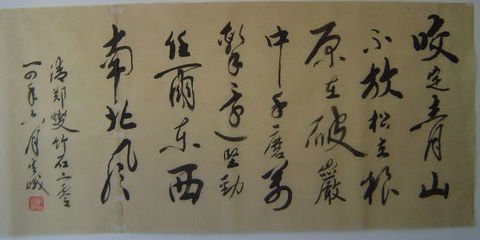 咬定青山
不放松立根
原在破巖
中千磨万
擊还坚劲
任爾东西
南北风
清郑燮竹石
一四年六月